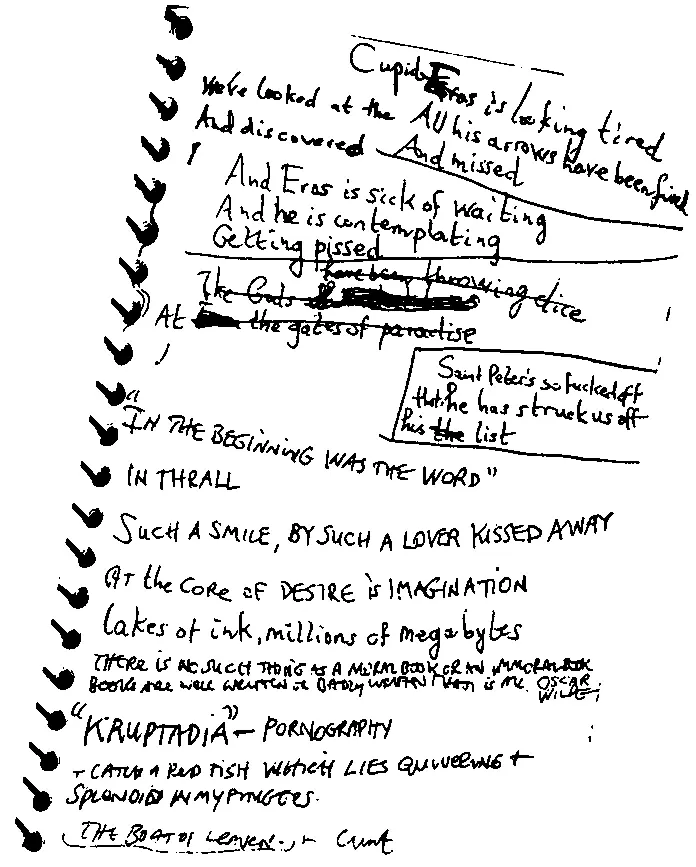 Cupid Eros is looking tired
We've looked at the All his arrows have been fired
And discovered And missed
And Eros is sick of waiting
And he is contemplating
Getting pissed
have been throwing dice
The Gods
At the gates of paradise
Saint Peter's so fucked off
that he has struck us off
his the list
"IN THE BEGINNING WAS THE WORD"
IN THRALL
SUCH A SMILE, BY SUCH A LOVER KISSED AWAY
AT the CORE OF DESIRE is IMAGINATION
lakes of ink, millions of megabytes
THERE IS NO SUCH THING AS A MORAL BOOK OR AN IMMORAL BOOK
BOOKS ARE WELL WRITTEN OR BADLY WRITTEN THAT IS ALL. OSCAR
WILDE
"KRUPTADIA" - PORNOGRAPHY
- CATCH A RED FISH WHICH LIES QUIVERING +
SPLENDID IN MY FINGERS.
THE BOAT OF - Cunt